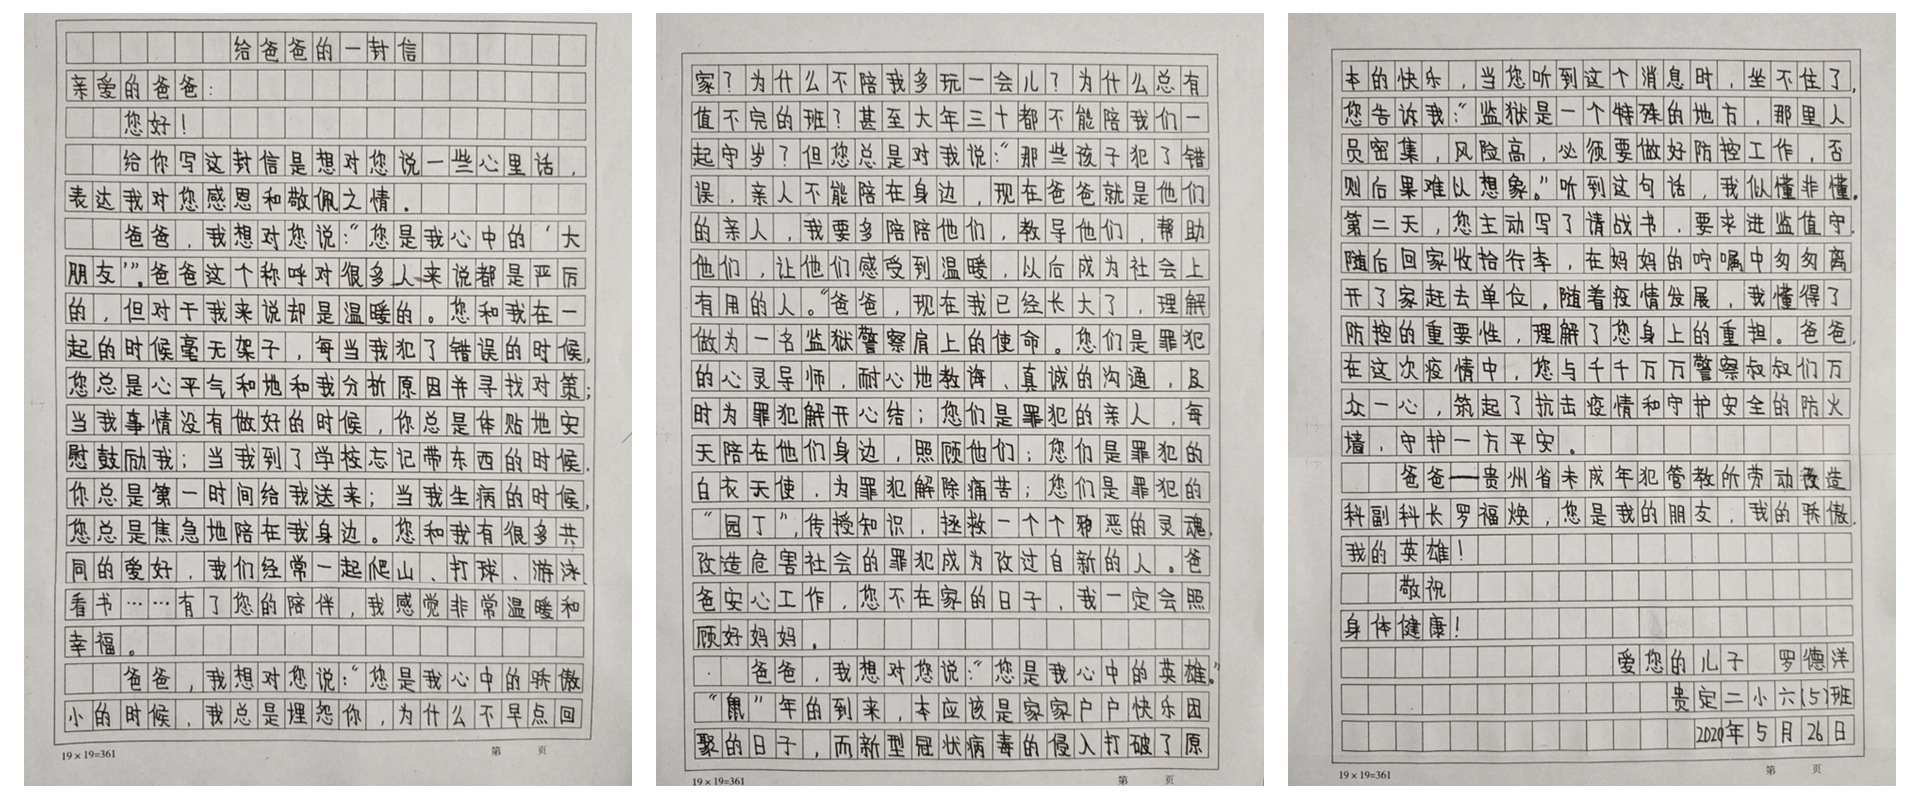 给爸爸的一封信
亲爱的爸爸：
您好！
给你写这封信是想对您说一些心里话，
表达我对您感恩和敬佩之情。
爸爸，我想对您说：“您是我心中的‘大
朋友’”。爸爸这个称呼对很多人来说都是严厉
的，但对于我来说却是温暖的。您和我在一
起的时候毫无架子，每当我犯了错误的时候，
您总是心平气和地和我分析原因并寻找对策；
当我事情没有做好的时候，你总是体贴地安
慰鼓励我；当我到了学校忘记带东西的时候，
你总是第一时间给我送来；当我生病的时候，
您总是焦急地陪在我身边。您和我有很多共
同的爱好，我们经常一起爬山、打球、游泳、
看书……有了您的陪伴，我感觉非常温暖和
幸福。
爸爸，我想对您说：“您是我心中的骄傲
小的时候，我总是埋怨你，为什么不早点回
19×19=361
第 页
家？为什么不陪我多玩一会儿？为什么总有
值不完的班？甚至大年三十都不能陪我们一
起守岁？但您总是对我说：“那些孩子犯了错
误，亲人不能陪在身边，现在爸爸就是他们
的亲人，我要多陪陪他们，教导他们，帮助
他们，让他们感受到温暖，以后成为社会上
有用的人。“爸爸，现在我已经长大了，理解
做为一名监狱警察肩上的使命。您们是罪犯
的心灵导师，耐心地教诲、真诚的沟通，及
时为罪犯解开心结；您们是罪犯的亲人，每
天陪在他们身边，照顾他们；您们是罪犯的
白衣天使，为罪犯解除痛苦；您们是罪犯的
“园丁”，传授知识，拯救一个个邪恶的灵魂，
改造危害社会的罪犯成为改过自新的人。爸
爸安心工作，您不在家的日子，我一定会照
顾好妈妈。
爸爸，我想对您说：“您是我心中的英雄。”
“鼠”年的到来，本应该是家家户户快乐团
聚的日子，而新型冠状病毒的侵入打破了原
19×19=361
第 页
本的快乐，当您听到这个消息时，坐不住了，
您告诉我：“监狱是一个特殊的地方，那里人
员密集，风险高，必须要做好防控工作，否
则后果难以想象。”听到这句话，我似懂非懂。
第二天，您主动写了请战书，要求进监值守，
随后回家收拾行李，在妈妈的叮嘱中匆匆离
开了家赶去单位。随着疫情发展，我懂得了
防控的重要性，理解了您身上的重担。爸爸，
在这次疫情中，您与千千万万警察叔叔们万
众一心，筑起了抗击疫情和守护安全的防火
墙，守护一方平安。
爸爸——贵州省未成年犯管教所劳动改造
科副科长罗福焕，您是我的朋友，我的骄傲，
我的英雄！
敬祝
身体健康！
爱您的儿子 罗德洋
贵定二小六(5)班
2020年5月26日
19×19=361
第 页